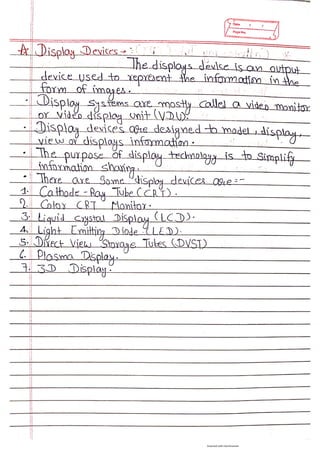 Date
Page No.
A. Display Devices →
The displays device is an output
device used to represent the information in the
form of images.
• Display systems are mostly called a video monitor
or video display unit (VDU).
• Display devices are designed to model, display,
view or displays information.
• The purpose of display technology is to simplify
information sharing.
• There are some display devices are:-
1. Cathode-Ray Tube (CRT).
2. Color CRT Monitor.
3. Liquid crystal Display (LCD).
4. Light Emitting Diode (LED).
5. Direct View Storage Tubes (DVST)
6. Plasma Display.
7. 3D Display.
Scanned with CamScanner